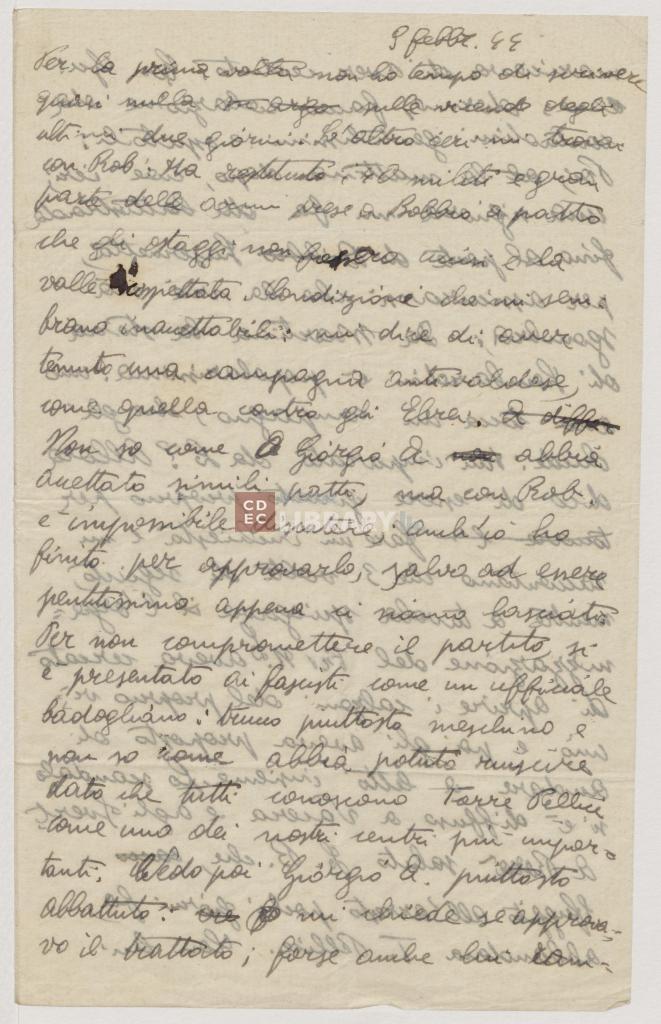 9 febbr. 44
Per la prima volta non ho tempo di scrivere
quasi nulla sulle vicende degli
ultimi due giorni. L'altro ieri mi trovai
con Rob. Ha restituito i militi e gran
parte delle armi prese a Bobbio a patto
che gli ostaggi non uccisi e la
valle rispettata. Condizioni che mi sem-
brano inaccettabili: mi dice di aver
temuto una campagna antivaldese,
come quella contro gli Ebrei. E diffe
Non so come Giorgio A. abbia
accettato simili patti, ma con Rob.
è impossibile discutere, anch'io ho
finito per approvarlo, salvo ad essere
pentitissima appena ci siamo lasciati.
Per non compromettere il partito si
è presentato ai fascisti come un ufficiale
badogliano: trucco piuttosto meschino, e
non so come abbia potuto riuscire
dato che tutti conoscono Torre Pellice
come uno dei nostri centri più impor-
tanti. Vedo poi Giorgio A. piuttosto
abbattuto: mi chiede se approva-
vo il trattato; forse anche lui com-
CD
EC LIBRARY